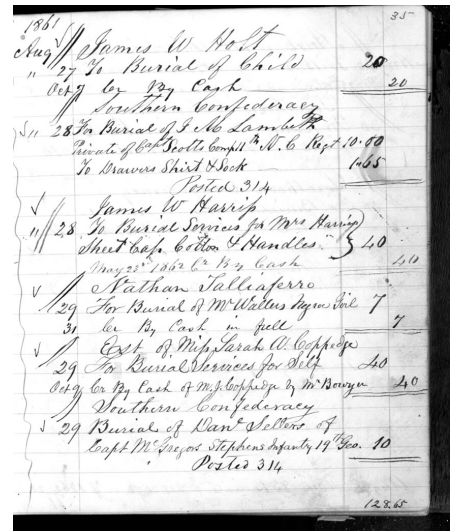 35
1861
Aug James W Holt
" 27 To Burial of Child 20
Oct 9 Cr By Cash 20
Southern Confederacy
" 28 For Burial of J M Lambeth
Private of Capt Scotts Comp 11th N. C Regt 10.00
To Drawers Shirt & Sock 1.65
Posted 314
James W Harris
" 28 To Burial Services for Mrs Harris
Sheet Cap Cotton & Handles } 40
May 23d 1862 Cr By Cash 40
Nathan Talliaferro
29 For Burial of Mr Walters Negro Girl 7
31 Cr By Cash in full 7
Est of Miss Sarah W. Coppedge
29 For Burial Services for Self 40
Oct 9 Cr By Cash of M. J. Coppedge by Mr Bowyer 40
Southern Confederacy
29 Burial of Danl Sellers of
Capt McGregors Stephens Infantry 19th Geo. 10
Posted 314
128.65